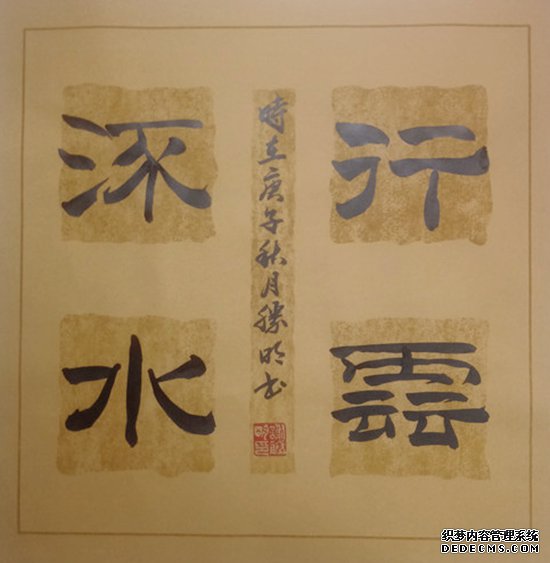 行雲
流水
時在庚子秋月勝明书
织梦内容管理系统
DEDECMS.COM